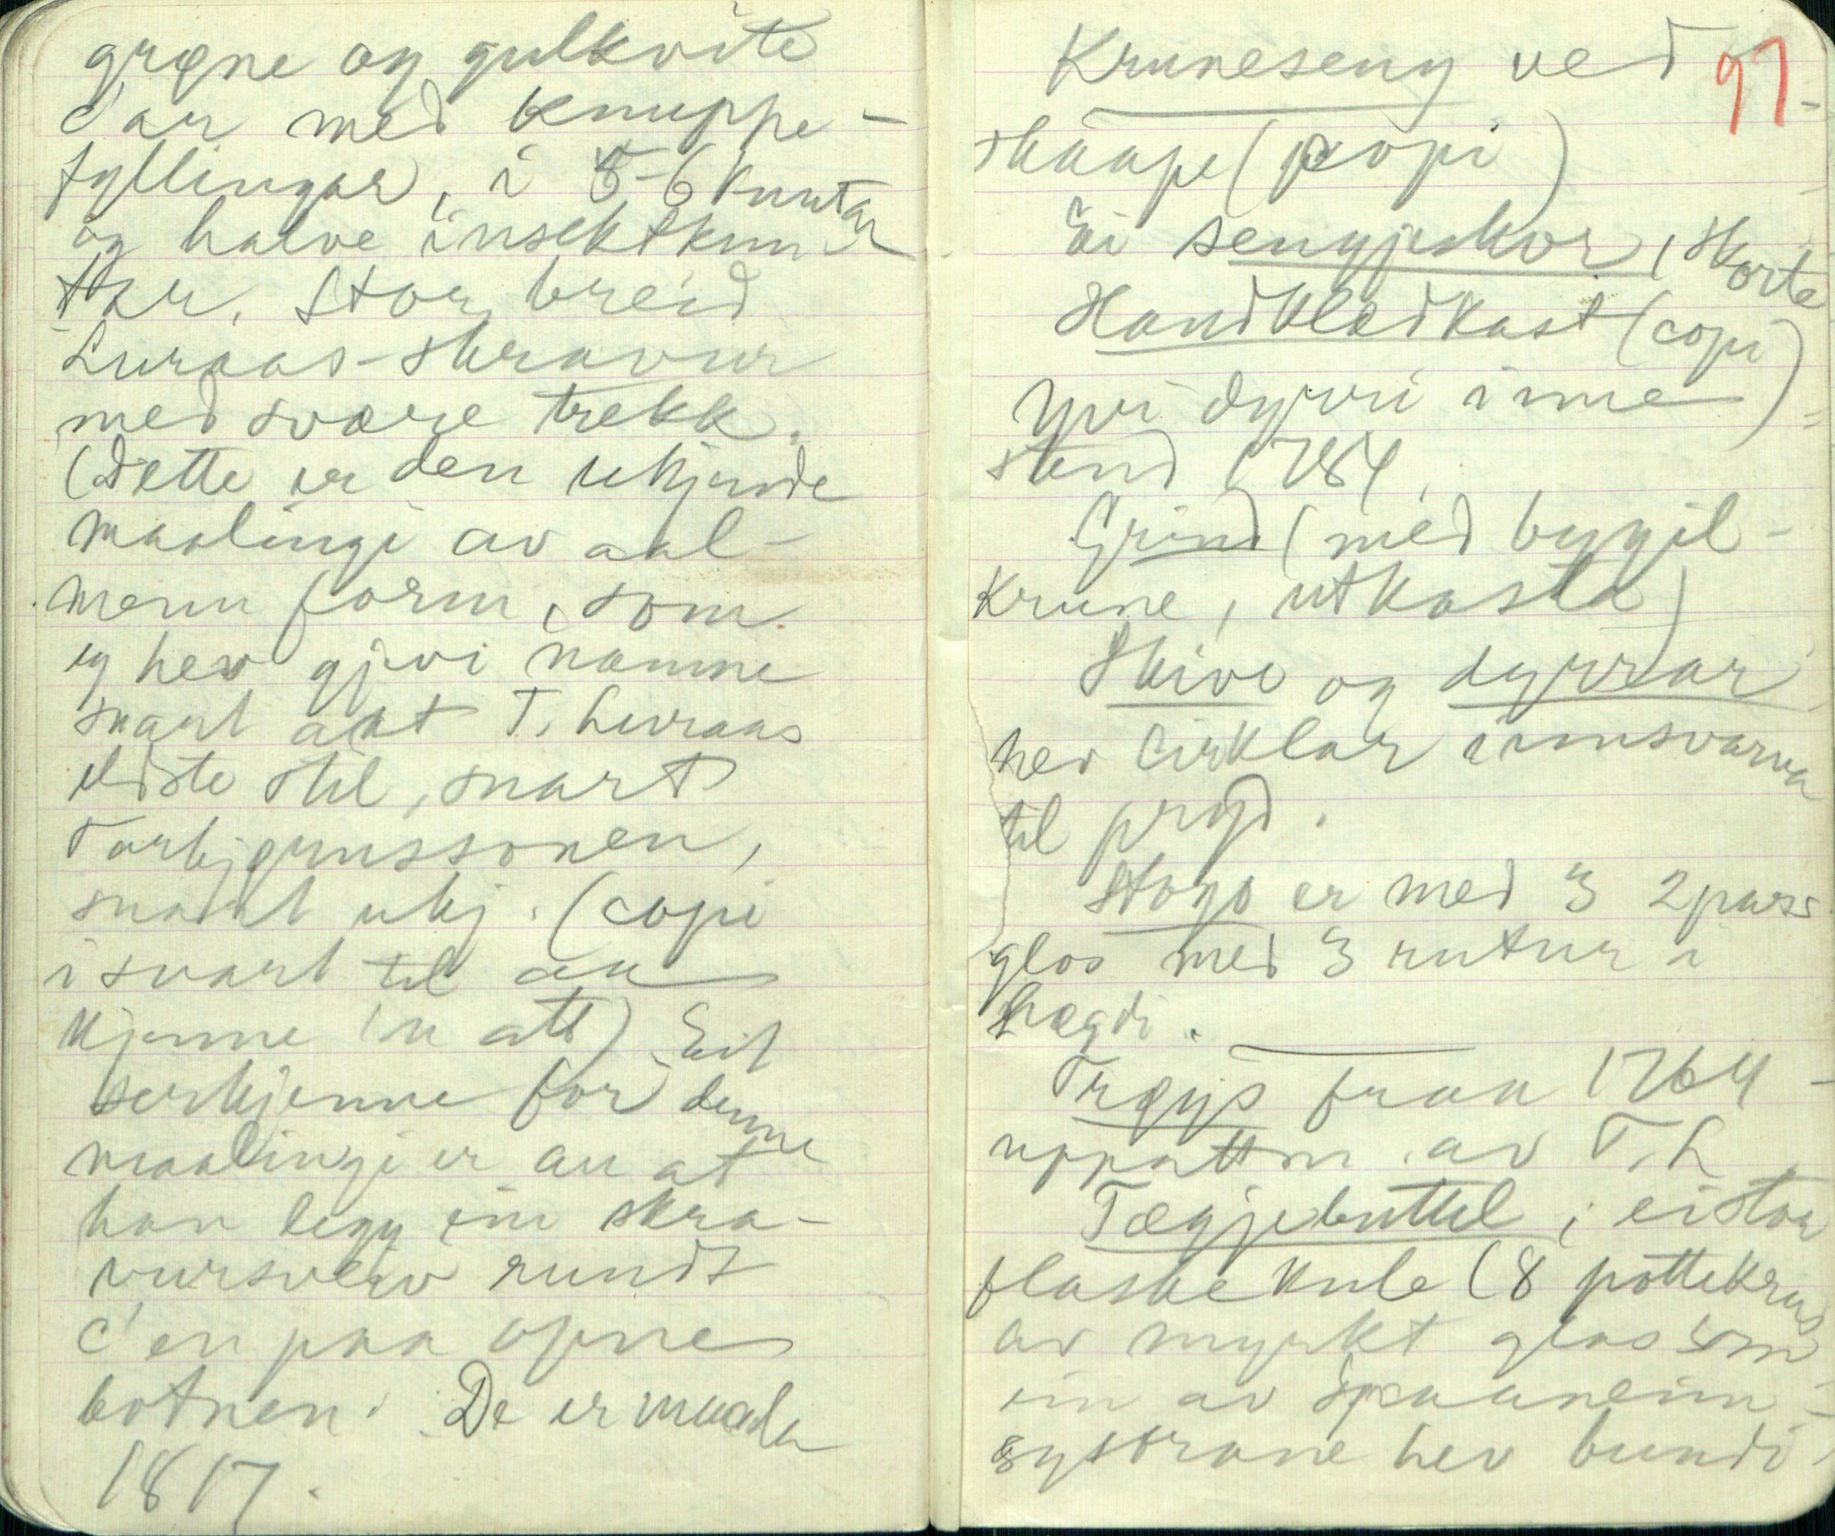 grøne og gulkvite
c'ar med knuppe-
fyllingar, i 5-6 knutar
og halve insektknu-
tar. Stor, breid
Luraas-skravur
med svære trekk.
(Dette er den ukjende
maalingi av aal-
menn form, som
eg hev gjevi namne
snart alt T. Luraas
eldste stil, snart
Torbjørnssonen,
snart ukj. (copi
i svart til aa
kjenne 'n att) Eit
serkjenne for denne
maalingi er au at
han legg ein skra-
vursveiv rundt
c'en paa opne
botnen. De er maala
1817.
Kruneseng ved
97
skaape (copi)
Ei sengjeskor, skorte
Handklædkast (copi)
yvi dyrri inne
stend 1784.
Grind (med bygil-
krune, utkasta)
Skive og dyrrar
hev cirklar innsvarva
til pryd.
Stogo er med 3 2 pars
glas med 3 rutur i
høgdi.
Trøys fraa 1764
uppattm. av T. L
Tægjebuttel, ei stor
flaskekule (8 pottekrus
av myrkt glas som
ein av Spaaneinn-
systrane hev bundi